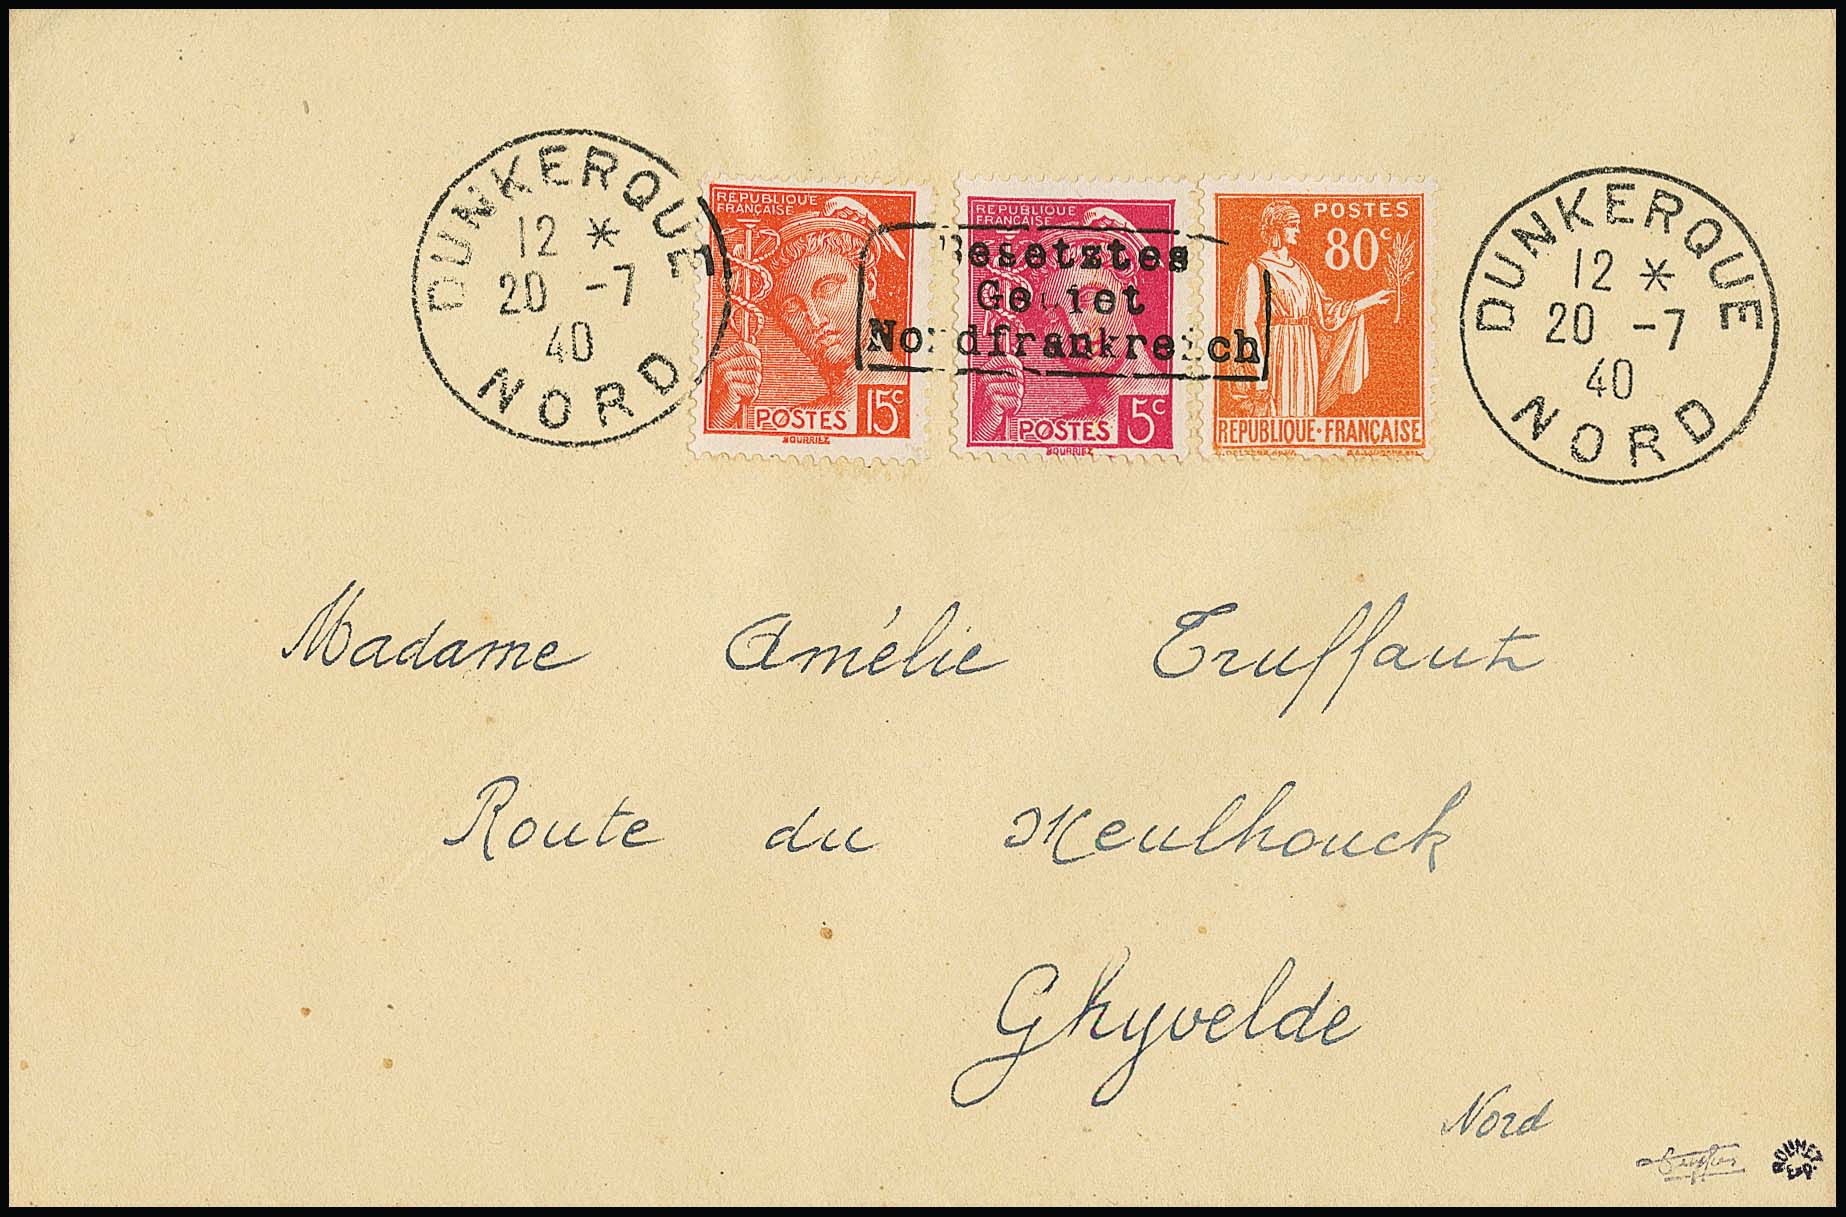 DUNKERQUE
12 *
20 -7
40
NORD
REPUBLIQUE
FRANÇAISE
POSTES 15c
BOURRIEZ
REPUBLIQUE
FRANÇAISE
POSTES 5c
BOURRIEZ
POSTES
80c
REPUBLIQUE·FRANÇAISE
Besetztes
Gebiet
Nordfrankreich
DUNKERQUE
12 *
20 -7
40
NORD
Madame Amélie Truffaut
Route du Meulhouck
Ghyvelde
Nord
ROUMET